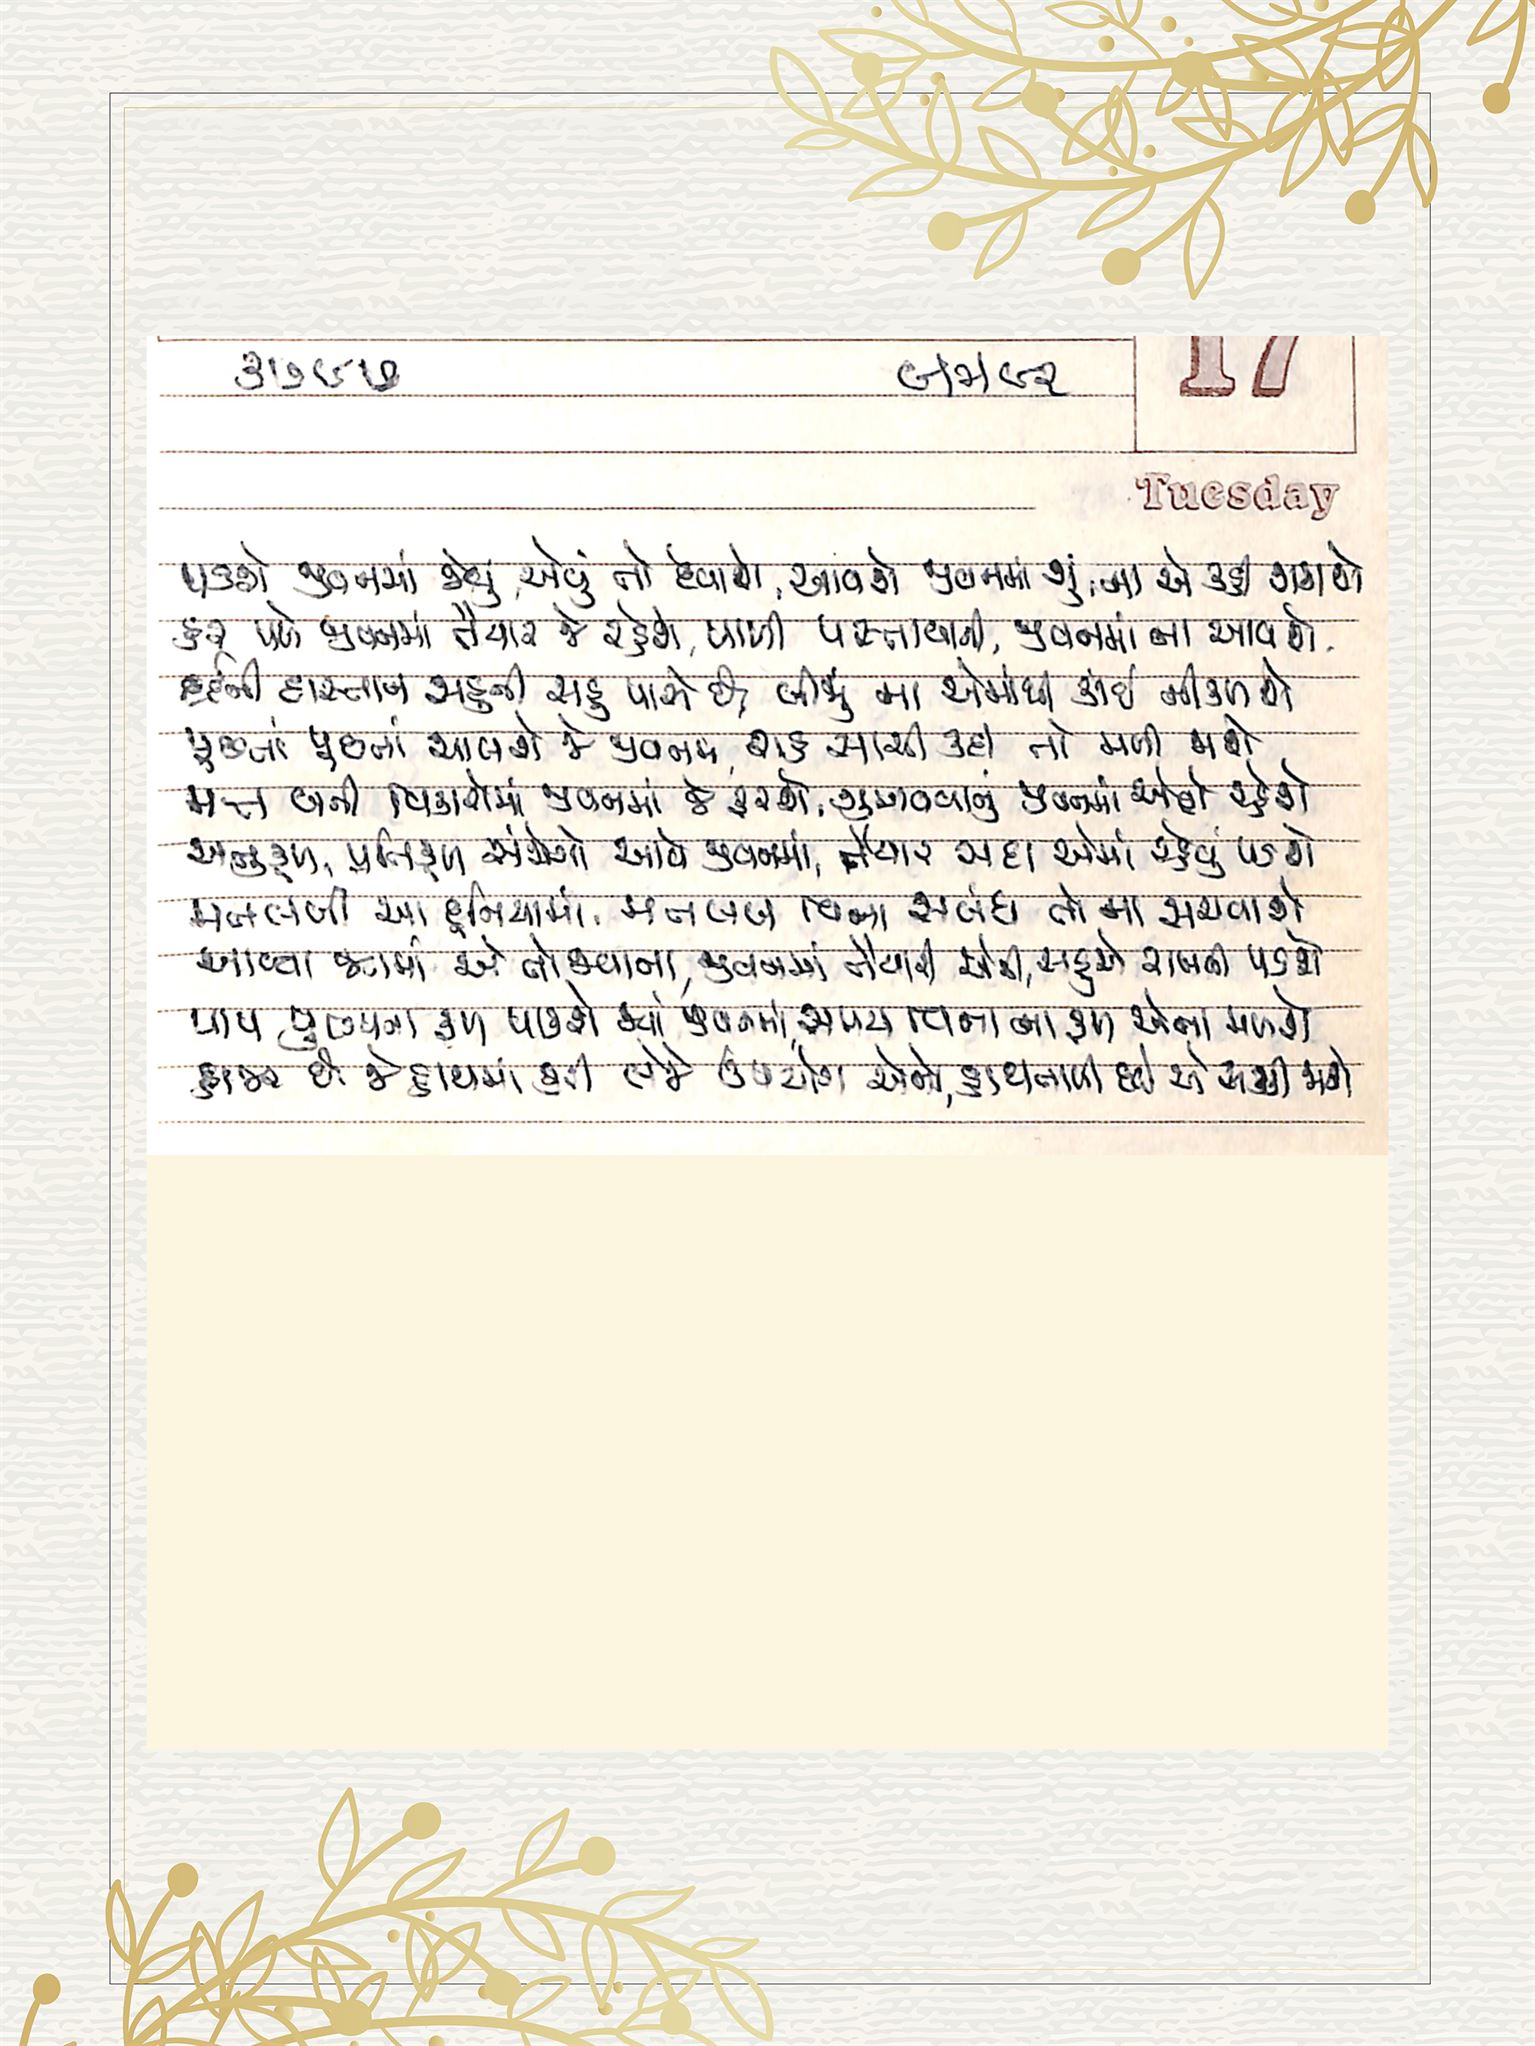 ૩૭૯૭ ૯/૫/૯૨
17
Tuesday
પડશે જીવનમાં કેવું, એવું તો દેવાશે, આવશે જીવનમાં શું, ના એ કહી શકાશે
હર પળે જીવનમાં તૈયાર જે રહેશે, પાળી પસ્તાવાની, જીવનમાં ના આવશે.
દર્દની દાસ્તાન સહુની સહુ પાસે છે, બીજું ના એમાંથી કાંઈ નીકળશે
પૂછતાં પૂછતાં ચાલશે જે જીવનમાં, રાહ સાચી કહી તો મળી જાશે
મત્ત બની વિકારોમાં જીવનમાં જે ફરશે, ગુમાવવાનું જીવનમાં એણે રહેશે
અનુકૂળ, પ્રતિકૂળ સંજોગો આવે જીવનમાં, તૈયાર સદા એમાં રહેવું પડશે
મતલબી આ દુનિયામાં, મતલબ વિના સબંધ તો ના સચવાશે
આવ્યા જગમાં એ તો જવાના, જીવનમાં તૈયારી એની, સહુએ રાખવી પડશે
પાપ પુણ્યના ફળ પાકશે જ્યાં જીવનમાં, સમય વિના ના ફળ એના મળશે
હાજર છે જે હાથમાં કરી લેજે ઉપયોગ એનો, હાથતાળી દઈ એ સરી જાશે